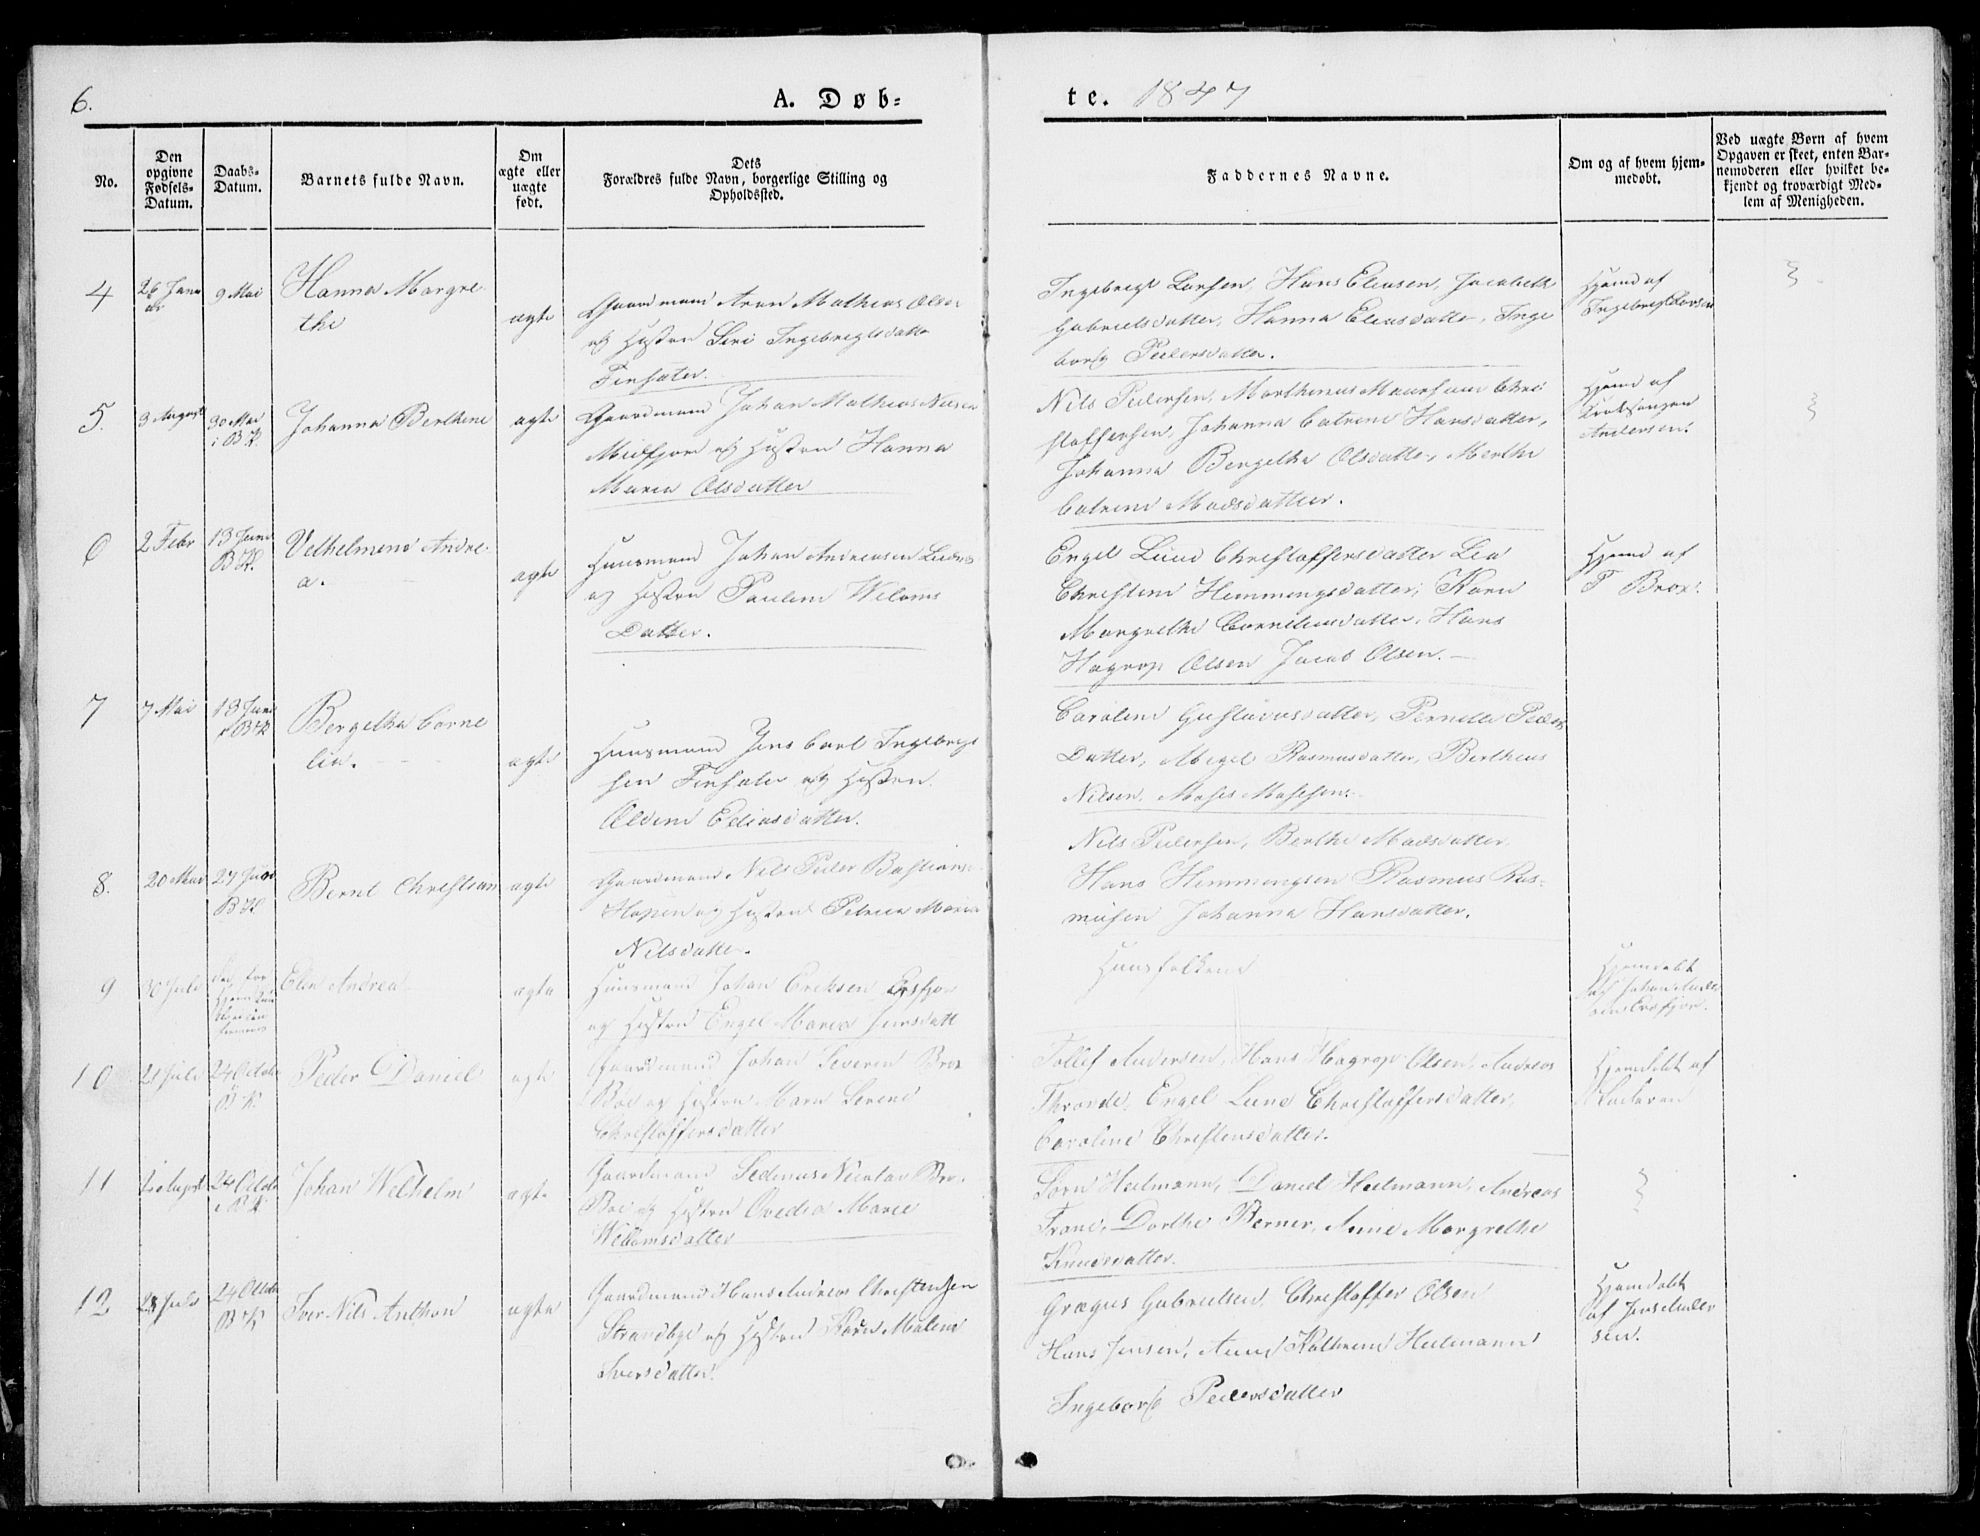 6.
A. Døb-
te. 1847
No.
Den opgivne Fødsels-Datum.
Daabs-Datum.
Barnets fulde Navn.
Om ægte eller uægte født.
Dets Forældres fulde Navn, borgerlige Stilling og Opholdssted.
Faddernes Navne.
Om og af hvem hjem-medøbt.
Ved uægte Børn af hvem
Opgaven er skeet, enten Bar-
nemoderen eller hvilket be-
kjendt og troværdigt Med-
lem af Menigheden.
4
26 Janu
ar
9 Mai
Hanna Margre
the
ægte
Gaardmand Aron Mathias Olsen
og Hustru Siri Ingebregtsdatter
Finsæter.
Ingebregt Larsen, Hans Eliasen, Jacobette
Gabrielsdatter, Hanna Eliasdatter, Inge
borg Pedersdatter.
Hjemd af
Ingebregt Larsen
5.
3 August
30 Mai
i B.K.
Johanna Berthine
ægte
Gaardmand Johan Mathias Nilsen
Midfjord og Hustru Hanna
Maria Olsdatter
Nils Pedersen, Marthinus Chri
stoffersen, Johanna Catrine Hansdatter,
Johanna Bergitha Olsdatter, Merthe
Catrine Madsdatter.
Hjemd af
Kirkesanger
Andersen.
6
2 Febr
13 Juni
B.K.
Velhelmine Andre
a.
ægte
Huusmand Johan Andreasen
og Hustru Pauline Weloms
Datter.
Engel Lund Christoffersdatter Lea
Christine Hemmingsdatter, Karen
Margrethe Corneliusdatter, Hans
Hagrop Olsen Jacob Olsen.
Hjemd af
T Brox.
7
7 Mai
13 Juni
i B.K
Bergitha Corne
lia.
ægte
Huusmand Jens Carl Ingebregt
sen Finsæter og Hustru
Oldine Eliasdatter.
Caroline Gustavusdatter, Pernille Peders
Datter, Abigel Rasmusdatter, Bertheus
Nilsen, Moses Mosesen.
8.
20 Mai
27 Juni
B.K
Bernt Christian
ægte
Gaardmand Nils Peder Bastians
Hopen og Hustru Petrica Maria
Nilsdatter.
Nils Pedersen, Berthe Madsdatter
Hans Hemmingsen Rasmus Ras-
musen Johanna Hansdatter.
9
30 Juli
Elen Andrea
ægte
Huusmand Johan Eriksen Ersfjor
og Hustru Engel Maria Jensdatt
Huusfolkene
Hjemdøbt
af Johan
Ersfjor.
10
21 Juli
24 Octob
B.K.
Peder Daniel
ægte
Gaardmand Johan Severin Brox
Boe og Hustru Maren Serene
Christoffersdatter
Tollef Andersen, Hans Hagrop Olsen, Andreas
Thronde, Engel Lund Christoffersdatter,
Caroline Christensdatter.
Hjemdøbt af
11
August
24 Octob
i B.K.
Johan Welhelm
ægte
Gaardmand Sedenius Nicolai Bro
Boe og Hustru Ovedia Marie
Wellomsdatter
Sørn Heitmann, Daniel Heitmann, Andreas
Trane, Dorthe Berner, Anne Margrethe
Knudsdatter.
12
28 Juli
24 Octob
B.K
Iver Nils Anthon
ægte
Gaardmand Hans Andreas Christensen
Strandbye og Hustru Karen Malene
Iversdatter.
Grægus Gabrielsen, Christoffer Olsen
Hans Jensen, Anne Kathrine Heitmann
Ingeborg Pedersdatter
Hjemdøbt
af Jens Ander
sen.